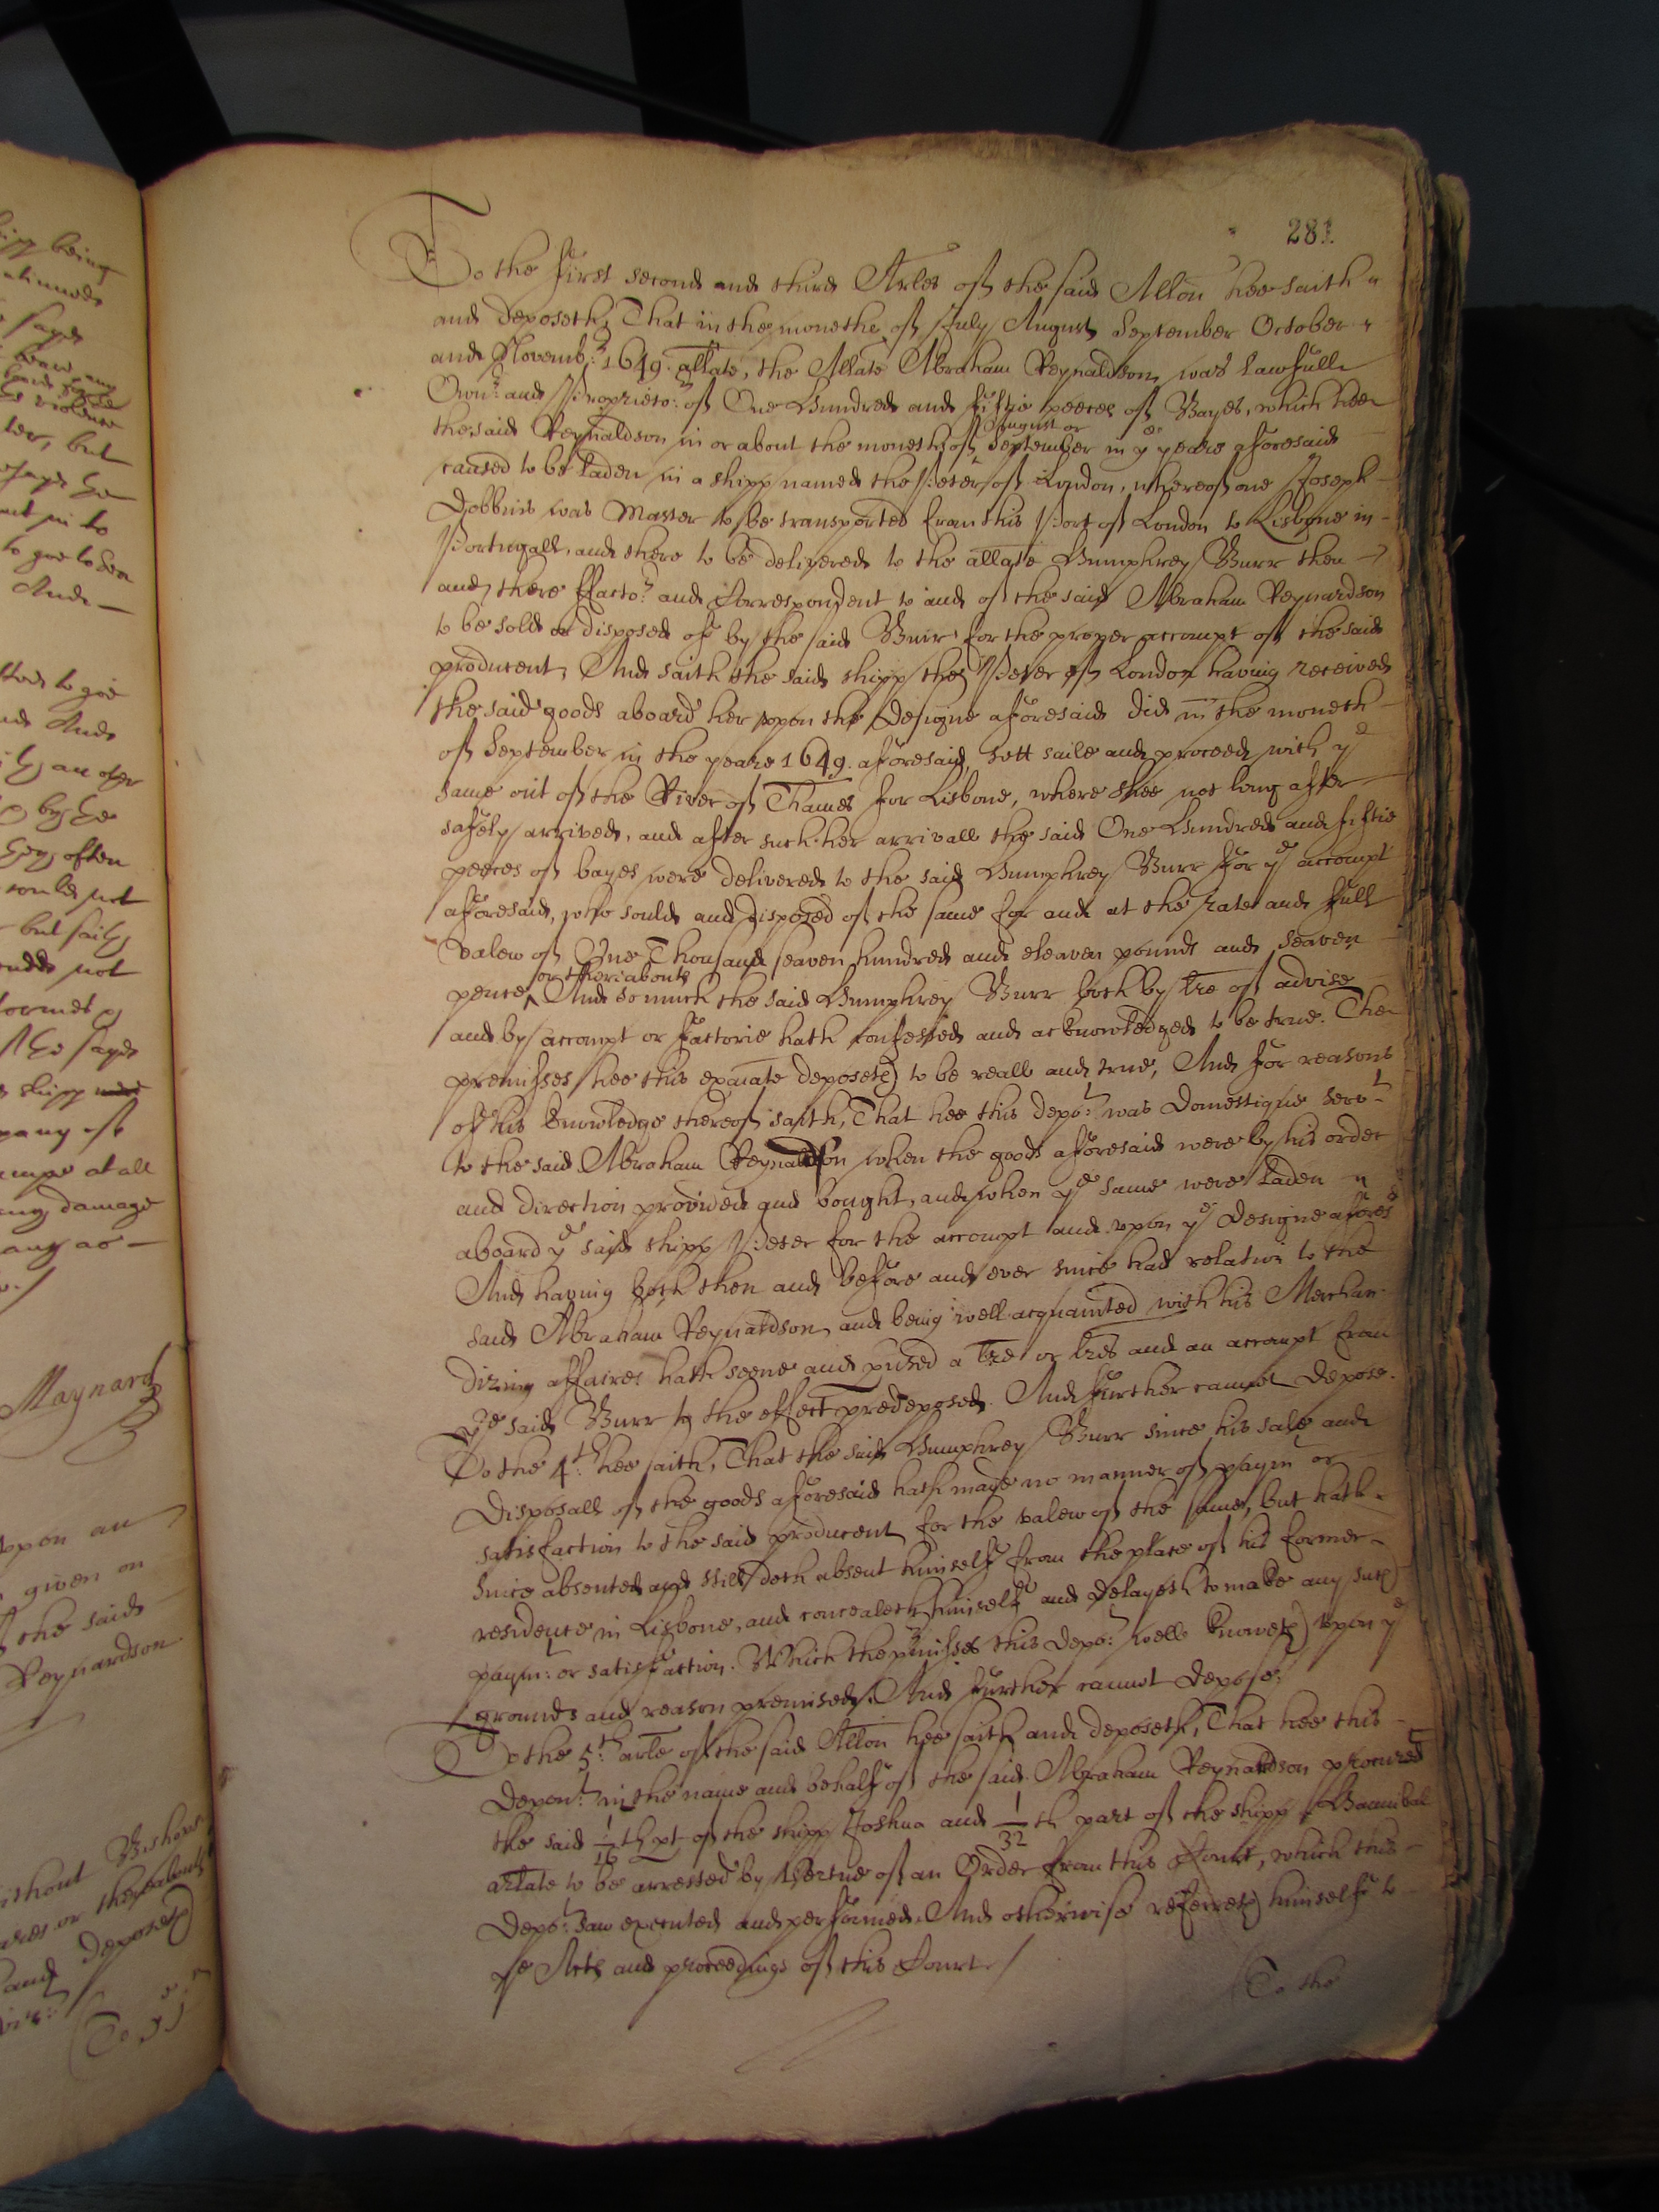 281.
To the first second and third Arles of the said Allon hee saith
and deposeth, That in the moneths of July August September October
and Novemb:r 1649. allate, the Allate Abraham Reynaldson, was lawfull
Own:r and Proprieto:r of One Hundred and fiftie peeces of Bayes, which hee
August or
the said Reynaldson in or about the moneth of September in ye yeare aforesaid
caused to be laden in a shipp named the Peter of London, whereof one Joseph
Dobbins was Master to be transported from this Port of London to Lisbone in
Portugall, and there to be delivered to the allate Humphrey Burr then
and there ffacto:r and Correspondent to and of the said Abraham Reynardson
to be sold or disposed of by the said Burr for the proper accompt of the said
producent, And saith the said shipp the Peter of London having received
the said goods aboard her upon the Designe aforesaid did in the moneth
of September in the yeare 1649. aforesaid, sett saile and proceed with ye
same out of the River of Thames for Lisbone, where shee not long after
safely arrived, and after such her arrivall the said One Hundred and fiftie
peeces of bayes were delivered to the said Humphrey Burr for ye accompt
aforesaid, who sould and disposed of the same for and at the rate and full
valew of One Thousand seaven hundred and eleaven pounds and seaven
or theriabouts
pence, And so much the said Humphrey Burr both by lre of advise
and by accompt or factorie hath confessed and acknowledged to be true. The
premisses hee this exaiate deposeth to be reall and true, And for reasons
of his knowledge thereof saith, That hee this depo:t was Domestique serv:t
to the said Abraham Reynaldson when the goods aforesaid were by his order
and direction provided and bought, and when ye same were laden
aboard ye said shipp Peter for the accompt and upon ye Designe afores:d
And having both then and before and ever since had relation to the
said Abraham Reynardson, and being well acquainted with his Merchan-
dizing affaires hath seene and p'used a lre or lres and an accompt from
ye said Burr to the effect predeposed. And further cannot depose.
To the 4:th hee saith, That the said Humphrey Burr since his sale and
disposall of the goods aforesaid hath made no manner of paym:t or
satisfaction to the said producent for the valew of the same, but hath
since absented and still doth absent himself from the place of his former
residence in Lisbone, and concealeth himself and delayeth to make any such
paym:t or satisfaction. Which the p'misses this depo:t well knoweth upon ye
grounds and reason premised. And further cannot depose.
To the 5:th arle of the said Allon hee saith and deposeth, That hee this
Depon:t in the name and behalf of the said Abraham Reynardson procured
the said 1/16 th pt of the shipp Joshua and 1/32 th part of the shipp Hannibal
arlate to be arrested by Vertue of an Order from this Court, which this
Depo:t saw executed and performed. And otherwise referreth himself to
ye Acts and proceedings of this Court /
To the
Maynard
upon an
given on
the said
Reynardson